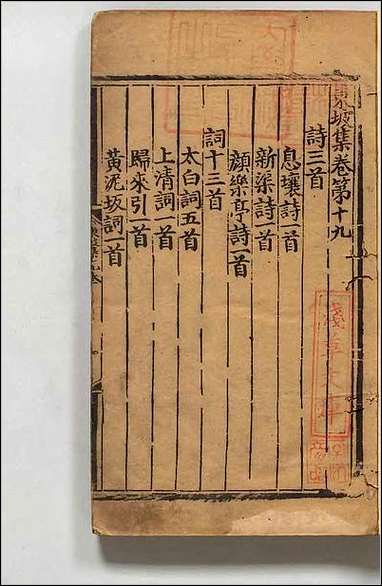 東坡集卷第十九
詩三首
息壤詩一首
新渠詩一首
顏樂亭詩一首
詞十三首
太白詞五首
上清詞一首
歸來引一首
黃泥坂詞一首